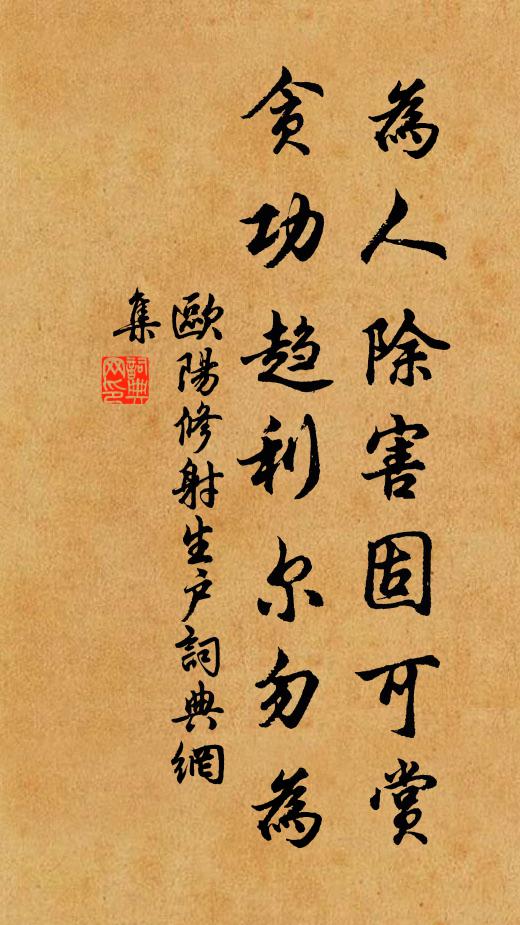 為人除害固可賞
貪功趨利尔勿為
歐陽修射生户詞典網
集
詞典
网印